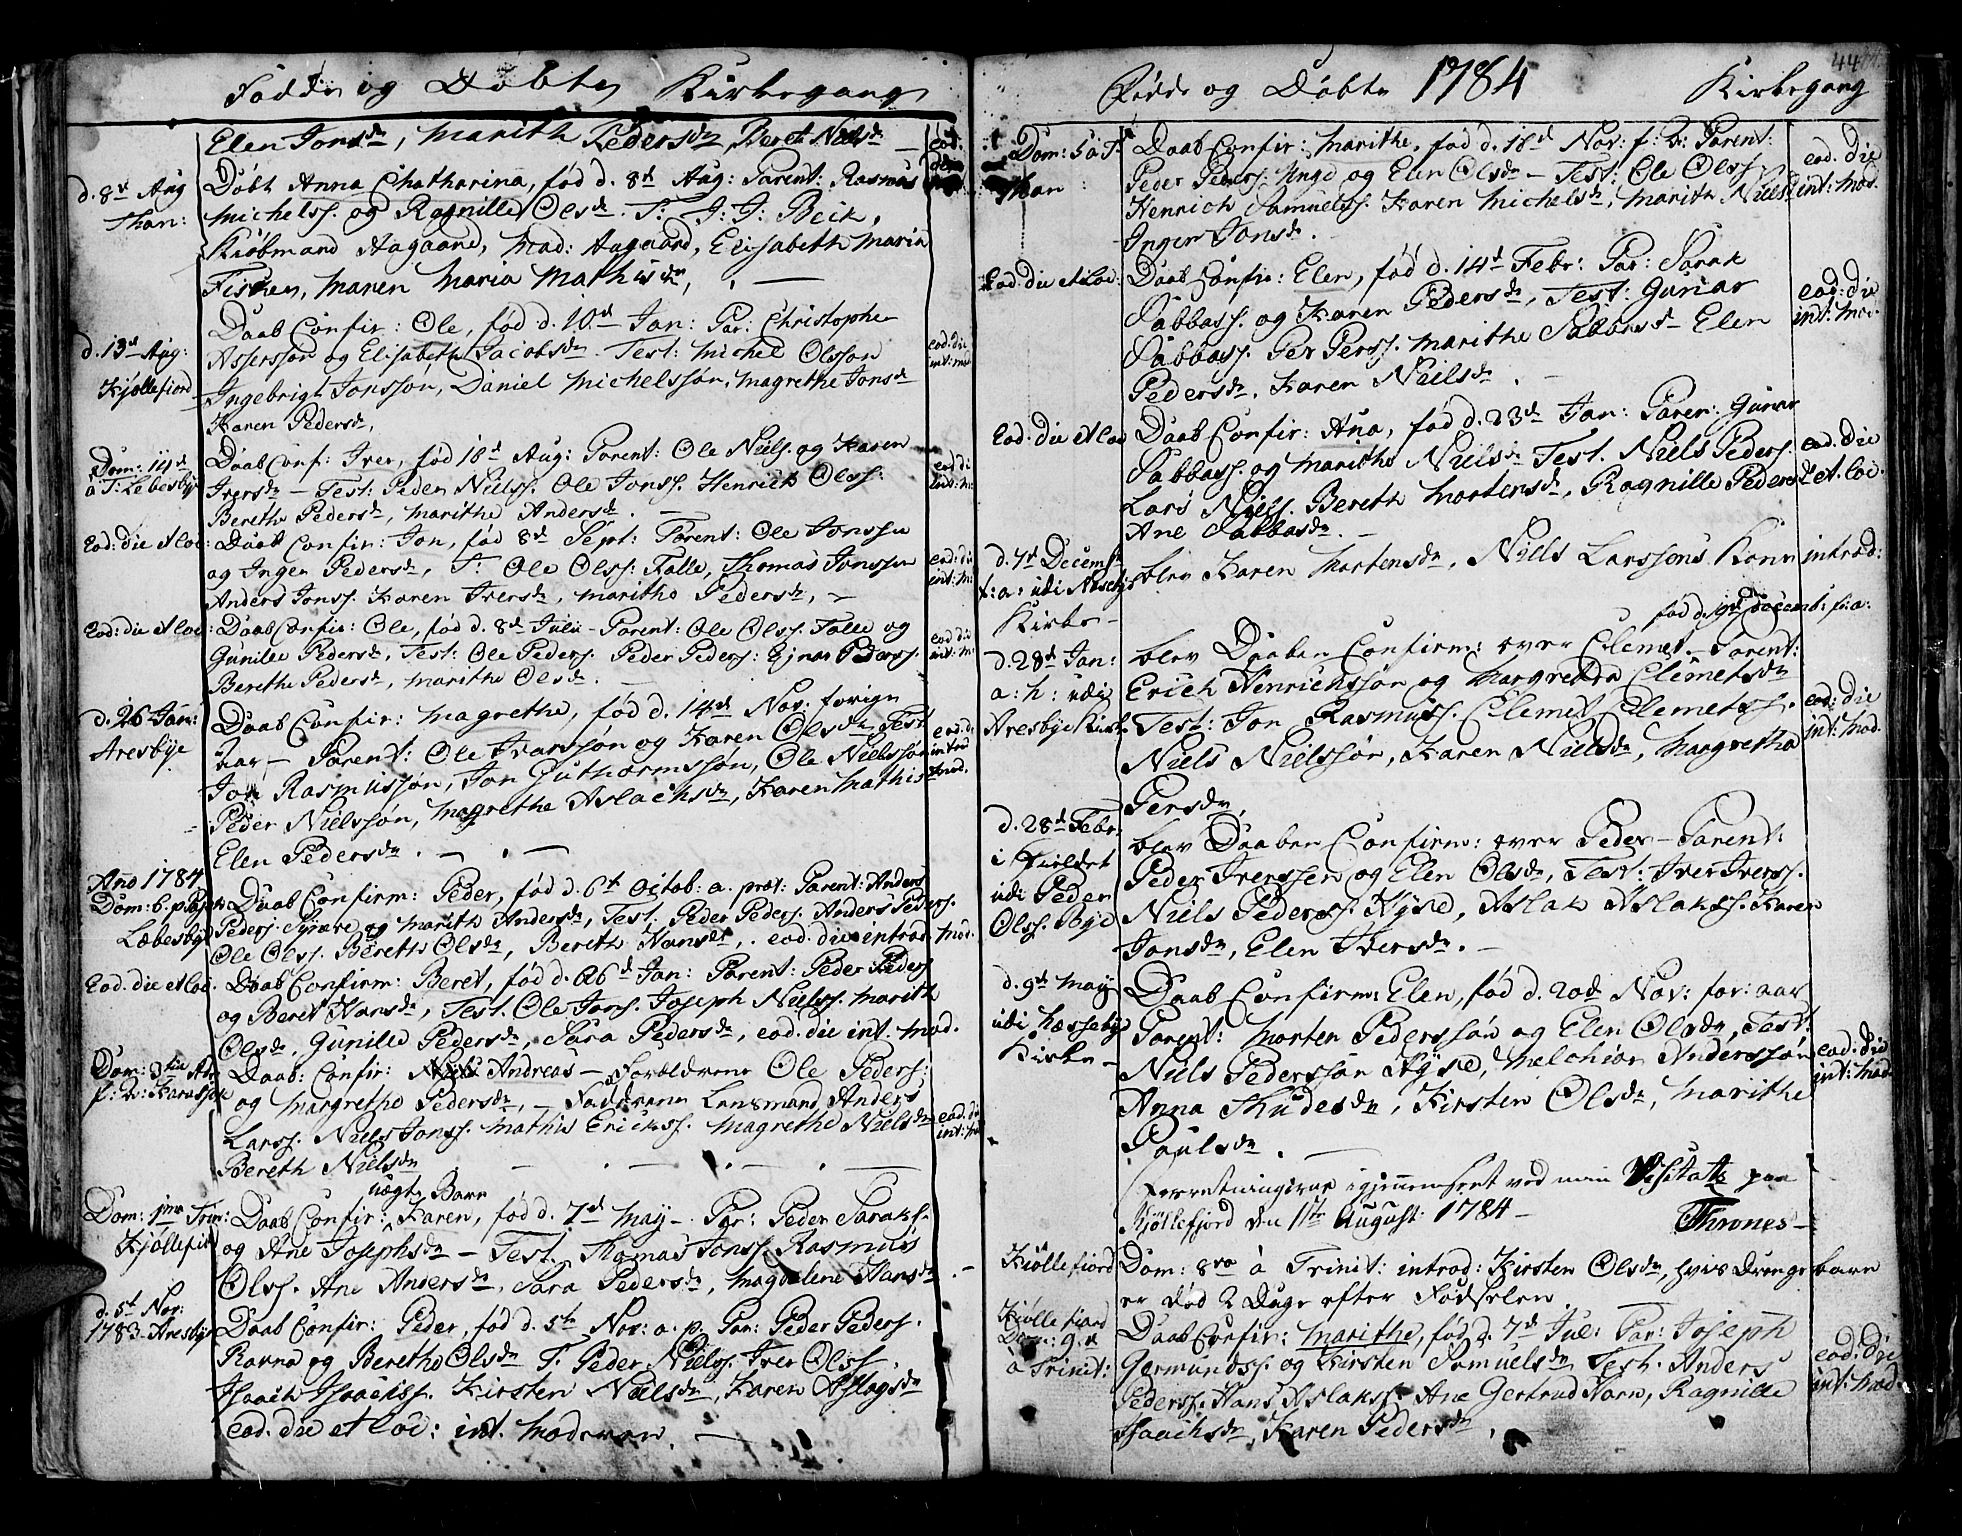 Fødde og Døbte Kirkegang
Elen Jonsdr, Marith Pedersdr, Beret Nielsdr —
d. 8d Aug
Than:
Døbt Anna Chatharina, fød d. 8d Aug: Parent: Rasmus
Michelss. og Ragnille Olsdr. T: J: J: Beck,
Kiøbmand Aagaard, Mad: Aagaard, Elisabeth Maria
Fischer, Maren Maria Mathisdr,
d. 13d Aug:
Kjøllefiord
Daab Confir: Ole, fød d. 10d Jan: Par: Christopher
Asserssøn og Elisabeth Jacobsdr. Test: Michel Olsson
Ingebrigt Jonssøn, Daniel Michelssøn, Magrethe Jonsdr
Karen Pedersdr,
eod: die
int: mod
Dom: 14d
a T. Lebesby
Daab Conf: Iver, fød 18d Aug: Parent: Ole Niels. og Karen
Iversdr — Test: Peder Nielss. Ole Jonss. Henrich Olss:
Berethe Pedersdr, Marithe Andersdr. —
eod: di
int: m:
Eod: die et loc:
Daab Confir: Jon, fød 8d Sept: Parent: Ole Jonssen
og Inger Pedersdr, T: Ole Olss: Falle, Thomas Jonssen
Anders Jonss. Karen Iversdr, Marithe Pedersdr, —
eod: die
int: M:
Eod: die et loc:
Daab Confir: Ole, fød d. 8d Julii — Parent: Ole Olss. Falle og
Gunilde Pedersdr, Test: Ole Peders. Peder Peders: Ejnar Pederss.
Berethe Pedersdr, Marithe Olsdr. —
eod die
int: M:
d. 26 Jan:
Aresbye
Daab Confir: Magrethe, fød d. 14d Nov: forige
Aar — Parent: Ole Ivarssøn og Karen Olsdr Test
Jon Rasmussøn, Jon Guthormssøn, Ole Nielssøn
Peder Nielssøn, Magrethe Aslachsdr, Karen Mathis
Elen Pedersdr. — . —
eod: d:
introd
mod.
Ano 1784
Dom: 6. p.
Læbesby
Daab Confirm: Peder, fød d. 6t Octob: a. præt: Parent: Anders
Peders. og Marith Andersdr, Test. Peder Peders. Anders Peders.
Ole Olss. Bereth Olsdr, Bereth Hansdr, . eod. die introd. Mod.
Eod. die et loc.
Daab Confirm: Beret, fød d. 26d Jan: Parent: Peder Peders
og Beret Hansdr, Test. Ole Jons. Joseph Nielss. Marith
Olsdr, Gunild Pedersdr, Sara Pedersdr, eod. die int. Mod.
Dom: 3tia
Daab: Confir: Andreas — Forældrene Ole Peders:
og Margrethe Pedersdr, — Fadderne Lensmand Anders
Larss. Niels Jonss. Mathis Erickss. Magrethe Nielsdr
Bereth Nielsdr
eod. di
int: M
uægte Barn
Dom: 1ma Trin:
Kjøllefiord
Daab Confir: Karen, fød d. 7d May — Par: Peder Saraks.
og Ane Josephsdr — Test. Thomas Jonss. Rasmus
Olss. Ane Andersdr, Sara Pedersdr, Magdalene Hansdr. —
d. 5t Nov:
1783. Aresbye
Daab Confir: Peder, fød d. 5t Nov: a. p. Par: Peder Peders.
Ravna og Berethe Olsdr T. Peder Nielss. Iver Olss.
Isaach Isaachss. Kirsten Nielsdr, Karen Aslagsdr
eod. die et loc: int. Moderen. —
44
Fødde og Døbte 1784 Kirkegang
Dom: 5 a T.
Than:
Daab Confir: Marithe, fød d. 18d Nov: f: A: Parent:
Peder Peders. Unge og Elen Olsdr — Test: Ole Olss.
Henrich Samuelss. Karen Michelsdr, Marith Nielsd
Inger Jonsdr.
eod. die
int: Mod.
Eod: die et loc:
Daab Confir: Elen, fød d. 14d Febr: Par: Sarak
Sabbass. og Karen Pedersdr, Test: Gunar
Sabbass. Per Perss. Marithe Sabbasdr Elen
Pedersdr, Karen Nielsdr. —
eod: die
int: Mo:
Eod: die et loc
Daab Confir: Ana, fød d. 23d Jan: Paren: Gunar
Sabbass. og Marithe Nielsdr Test. Niels Peders.
Lars Nielss. Bereth Mortensdr, Ragnille Pedersd
Ane Sabbasdr. —
eod: die
et. loc.
d. 7d Decembr
f: a: udi
Kirke —
blev Karen Mortensdr, Niels Larssons Kone introd:
fød d. 19d Decemb: f: a:
d. 28d Jan:
a: h: udi
Aresbye Kirke
blev Daaben Confirm: over Clemet — Parent:
Erich Henrichssøn og Margretha Clemetsdr
Test: Jon Rasmuss. Clemet Clemetss.
Niels Nielssøn, Karen Nielsdr, Margretha
Persdr,
eod: die
int: Mod.
d. 28d Febr:
i Fieldet
udi Peder
Olss. Bye
blev Daaben Confirm: over Peder — Parent:
Peder Iverssen og Elen Olsdr, Test: Iver Iverss.
Niels Pederss. Kysd, Aslak Aslakss. Karen
Jonsdr, Elen Iversdr. —
d. 9d May
udi Næssebye
Kirke —
Daab Confirm: Elen, fød d. 20d Nov: for: aar
Parent: Morten Pederssøn og Elen Olsdr, Test:
Niels Pederssøn Kysd, Melchior Anderssøn
Anna Thudesdr, Kirsten Olsdr, Marithe
Paulsdr. —
eod: die
int: Mod
Forretningerne igjennemseet ved min Visitatz paa
Kjøllefjord den 11te August 1784 — Thrones —
Kiøllefiord
Dom: 8va à Trinit: introd: Kirsten Olsdr, hvis Drengebarn
er død 2 Dage efter Fødselen.
Kiøllefiord
Dom: 9.a
à Trinit:
Daab Confir: Marithe, fød d. 7d Jul: Par: Joseph
Germundss. og Kirsten Samuelsdr Test. Anders
Pederss. Hans Aslakss. Ane Gertrud Horn, Ragnille
Isaachsdr, Karen Pedersdr.
eod: die
int: Mod.